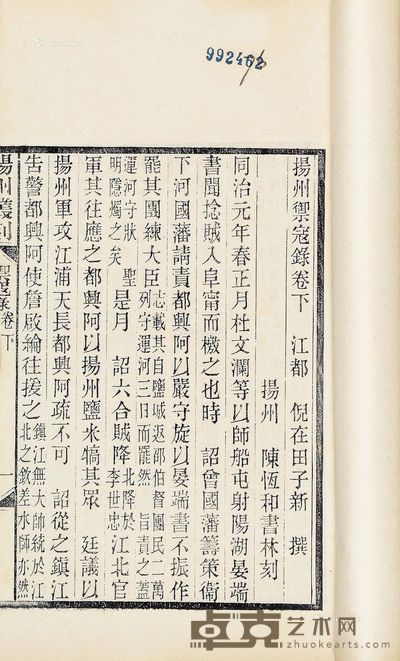 992462
揚州禦寇錄卷下　江都　倪在田子新　撰
揚州　陳恆和書林刻
同治元年春正月杜文瀾等以師船屯射陽湖晏端
書聞捻賊入阜甯而檄之也時　詔曾國藩籌策衞
下河國藩請責都興阿以嚴守旋以晏端書不振作
罷其團練大臣志載其自鹽城返邵伯督團民二萬列守運河三日而罷然　旨責之蓋
運河守狀　聖明隱燭之矣　是月　詔六合賊降北降於李世忠江北官
軍其往應之都興阿以揚州鹽米犒其眾　廷議以
揚州軍攻江浦天長都興阿疏不可　詔從之鎮江
告警都興阿使詹啟綸往援之鎮江無大師統於江北之欽差水師亦然
揚州叢刻　禦寇錄卷下　一
卓克艺术网
zhuokearts.com